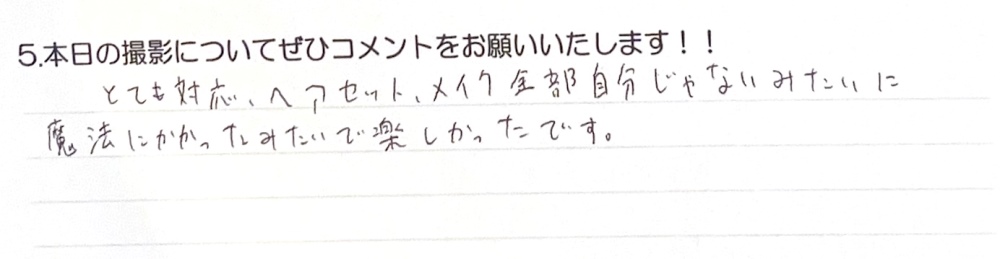 5.本日の撮影についてぜひコメントをお願いいたします！！
とても対応、ヘアセット、メイク全部自分じゃないみたいに
魔法にかかったみたいで楽しかったです。